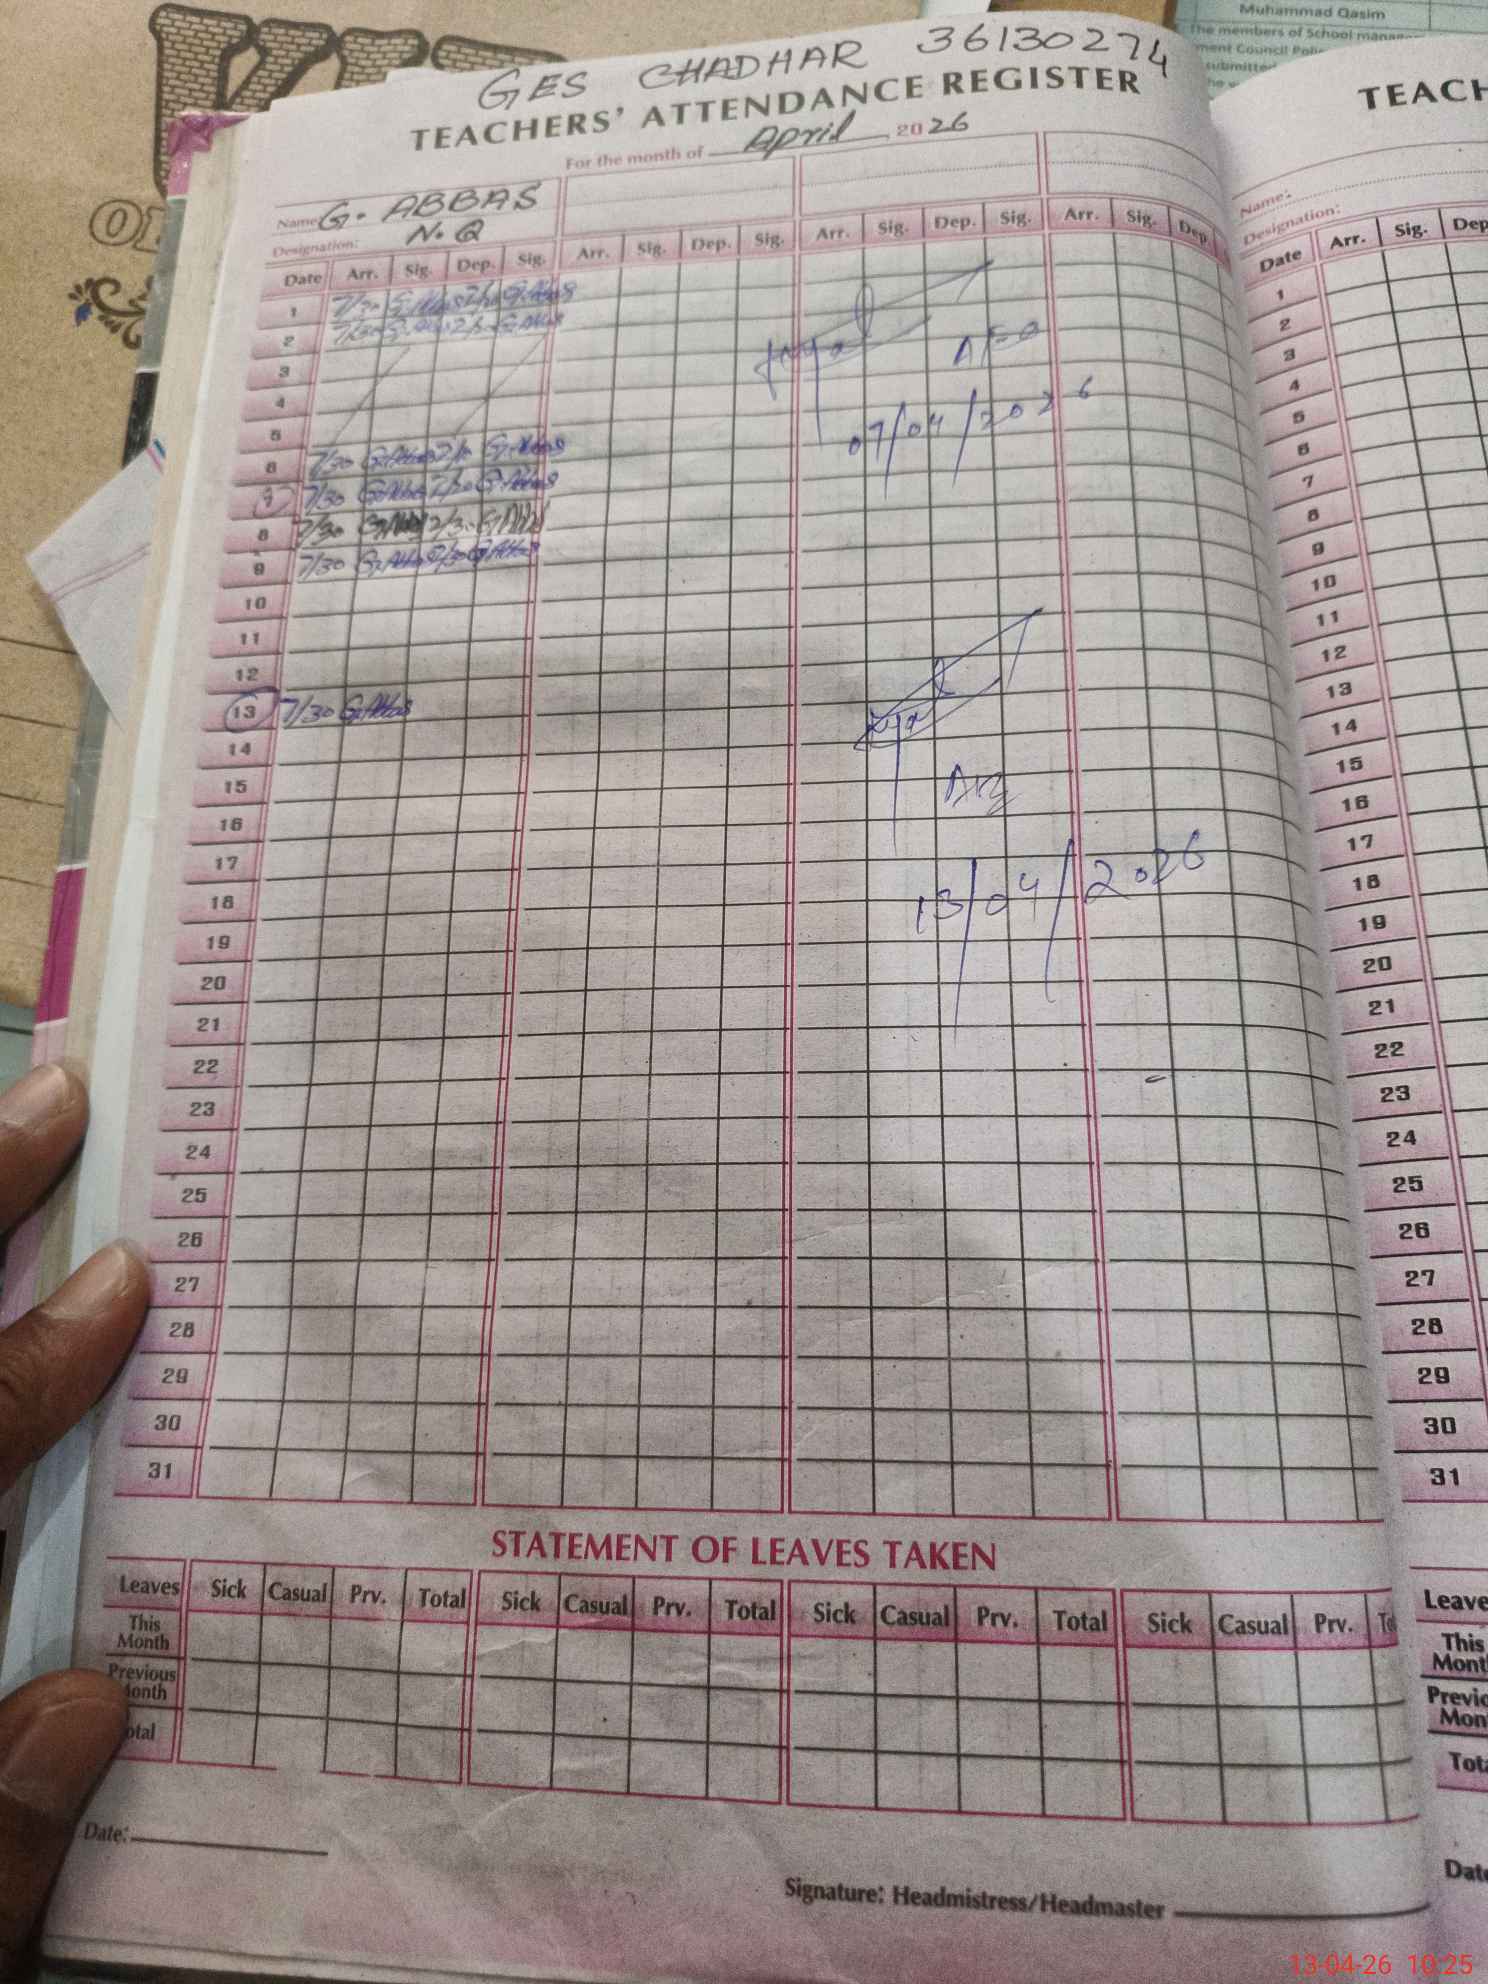 Muhammad Qasim
The members of School
ment Council
submitted
GES CHADHAR 36130274
TEACHERS' ATTENDANCE REGISTER
For the month of April 2026
Name: G. ABBAS
Designation: N.Q
Date Arr. Sig. Dep. Sig. Arr. Sig. Dep. Sig. Arr. Sig. Dep. Sig. Arr. Sig. Dep.
1 7/30 G.Abbas G.Abbas
2 7/30 G.Abbas G.Abbas
3
4
5
6 7/30 G.Abbas G.Abbas
7 7/30 G.Abbas G.Abbas
07/04/2026
8 7/30
9 7/30 G.Abbas G.Abbas
10
11
12
13 7/30 G.Abbas
14
15
16
17
18
13/04/2026
19
20
21
22
23
24
25
26
27
28
29
30
31
STATEMENT OF LEAVES TAKEN
Leaves Sick Casual Prv. Total Sick Casual Prv. Total Sick Casual Prv. Total Sick Casual Prv.
This
Month
Previous
Month
Total
Date:
Signature: Headmistress/Headmaster
TEACH
Name:
Designation:
Date Arr. Sig. Dep
1
2
3
4
5
6
7
8
9
10
11
12
13
14
15
16
17
18
19
20
21
22
23
24
25
26
27
28
29
30
31
Leave
This
Mont
Previo
Mon
Tota
Date
13-04-26 10:25